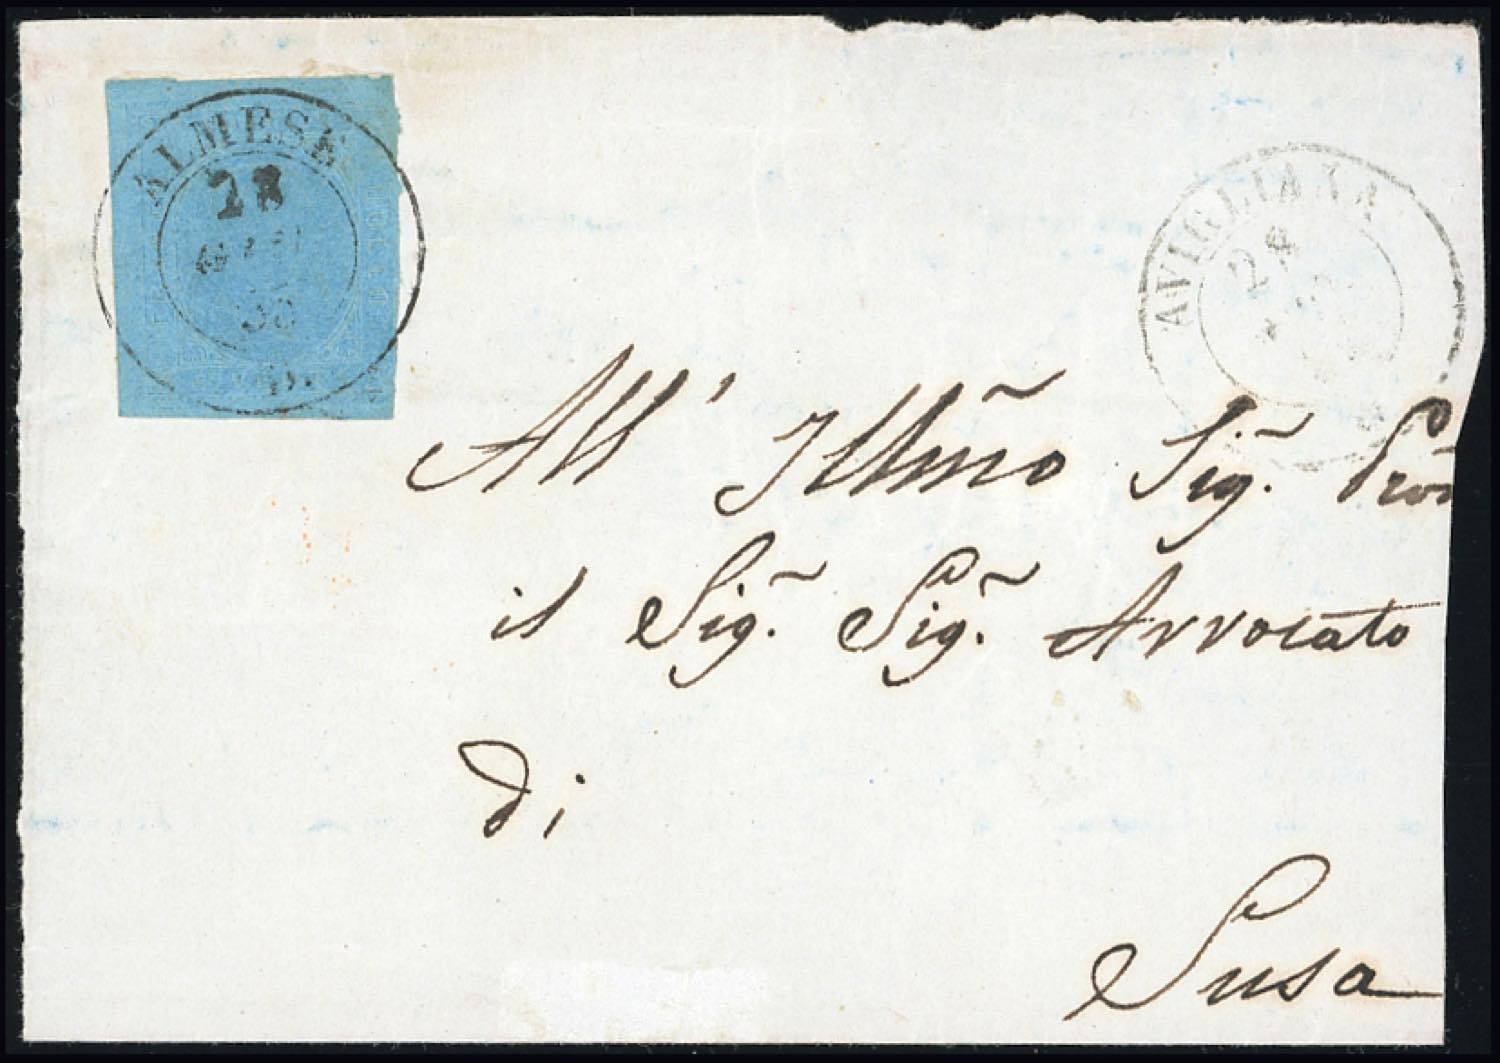 ALMESE
28
AVIGLIANA
All' Illm̃o Sig.̃
il Sig.̃ Sig.̃ Avvocato
di
Susa